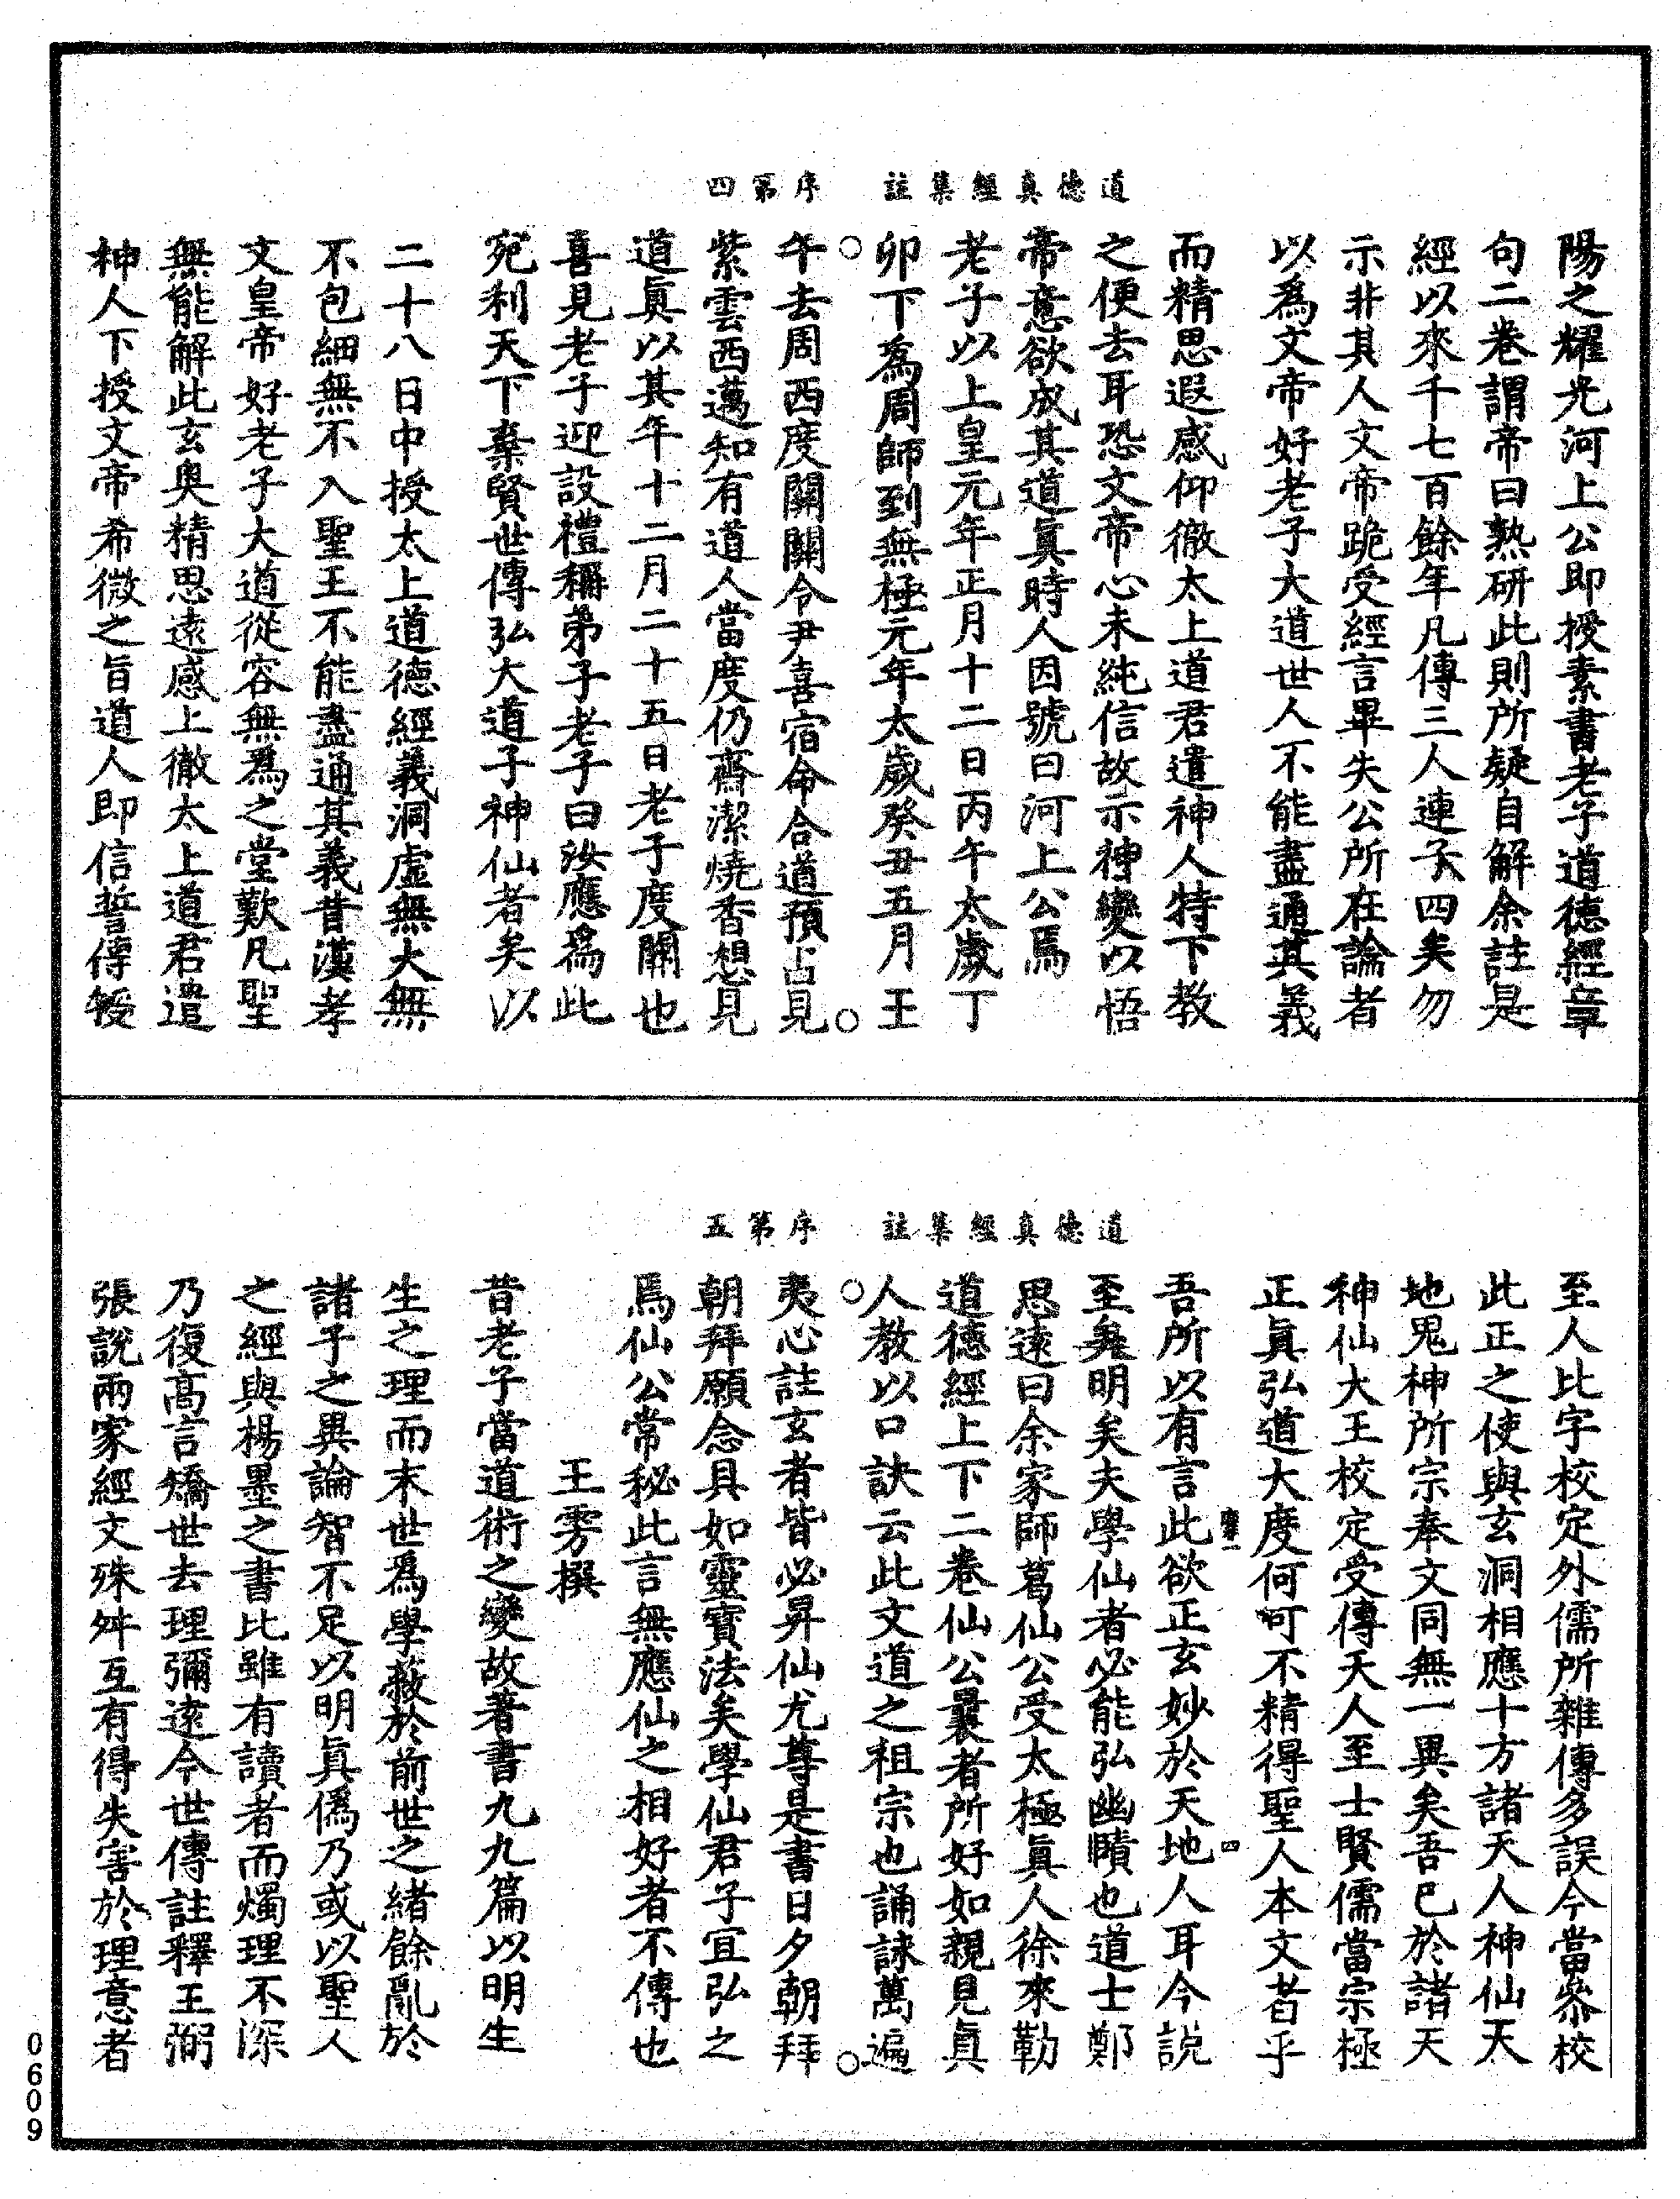 道德真經集註　序第四
陽之耀光河上公即授素書老子道德經章
句二卷謂帝曰熟研此則所疑自解余註是
經以來千七百餘年凡傳三人連子四矣勿
示非其人文帝跪受經言畢失公所在論者
以爲文帝好老子大道世人不能盡通其義
而精思遐感仰徹太上道君遣神人特下教
之便去耳恐文帝心未純信故示神變以悟
帝意欲成其道眞時人因號曰河上公焉
老子以上皇元年正月十二日丙午太歲丁
卯下爲周師到無極元年太歲癸丑五月壬
午去周西度關關令尹喜宿命合道預占見
紫雲西邁知有道人當度仍齋潔燒香想見
道眞以其年十二月二十五日老子度關也
喜見老子迎設禮稱弟子老子曰汝應爲此
宛利天下棄賢世傳弘大道子神仙者矣以
二十八日中授太上道德經義洞虛無大無
不包細無不入聖王不能盡通其義昔漢孝
文皇帝好老子大道從容無爲之堂歎凡聖
無能解此玄奧精思遠感上徹太上道君遣
神人下授文帝希微之旨道人即信誓傳授
道德真經集註　序第五
至人比字校定外儒所雜傳多誤今當叅校
此正之使與玄洞相應十方諸天人神仙天
地鬼神所宗奉文同無一異矣吾已於諸天
神仙大王校定受傳天人至士賢儒當宗極
正眞弘道大度何可不精得聖人本文者乎
吾所以有言此欲正玄妙於天地人耳今説
至矣明矣夫學仙者必能弘幽賾也道士鄭
思遠曰余家師葛仙公受太極眞人徐來勒
道德經上下二卷仙公曩者所好如親見眞
人教以口訣云此文道之祖宗也誦詠萬遍
夷心註玄者皆必昇仙尤尊是書日夕朝拜
朝拜願念具如靈寶法矣學仙君子宜弘之
焉仙公常秘此言無應仙之相好者不傳也
王雱撰
昔老子當道術之變故著書九九篇以明生
生之理而末世爲學蔽於前世之緒餘亂於
諸子之異論智不足以明眞僞乃或以聖人
之經與楊墨之書比雖有讀者而燭理不深
乃復高言矯世去理彌遠今世傳註釋王弼
張說兩家經文殊舛互有得失害於理意者
0609